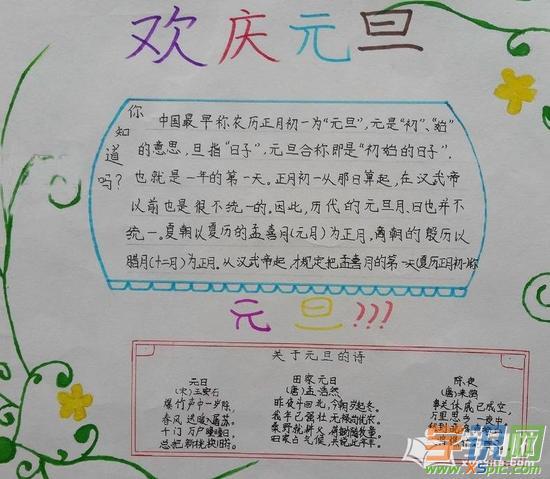 欢庆元旦
你知道吗?
中国最早称农历正月初一为“元旦”,元是“初”、“始”
的意思,旦指“日子”,元旦合称即是“初始的日子”,
也就是一年的第一天。正月初一从那日算起,在汉武帝
以前也是很不统一的。因此,历代的元旦月、日也并不
统一。夏朝以夏历的孟喜月(元月)为正月,商朝的殷历以
腊月(十二月)为正月。从汉武帝起,才规定把孟喜月的第一天(夏历正月初一)称
元旦???
关于元旦的诗
元日
(宋)王安石
爆竹声中一岁除,
春风送暖入屠苏。
千门万户曈曈日,
总把新桃换旧符。
田家元日
(唐)孟浩然
昨夜斗回北,今朝岁起东。
我年已强壮,无禄尚忧农。
桑野就耕父,荷锄随牧童。
田家占气候,共说此年丰。
除夜
(唐)来鹄
事关休戚已成空,
万里
一夜中
学识网
xspic.com